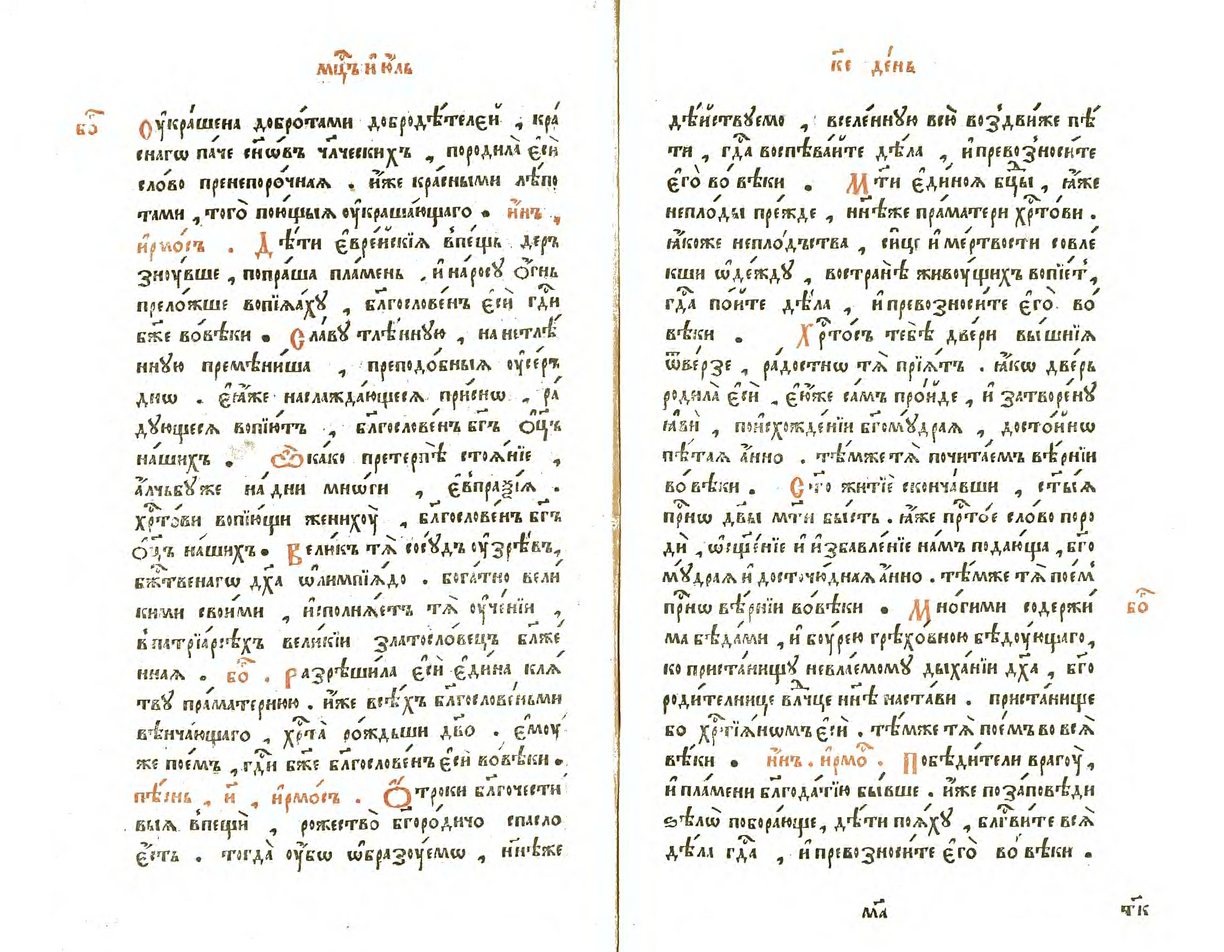 мц҃ъ і҆ю́ль
бо҃
Оу҆кра́шена добро́тами добродѣ́телей , кра
снагѡ па́че сн҃ѡвъ чл҃ческихъ , породила̀ є҆сѝ
сло́во пренепоро́чная . и҆́же кра́сными лѣ́по
тами , того̀ пою́щыя оу҆краша́ющаго . и҆́нъ ,
і҆рмо́съ . Дѣ́ти є҆вре́йскїя в̾пещѝ деръ
зноу́вше , попра́ша пла́мень , и҆ на́росу ѻ҆́гнь
прело́жше вопїѧ́ху , бл҃гослове́нъ є҆сѝ гд҇и
бж҃е во́вѣки . Сла́ву тлѣ́нную , на нетлѣ́
нную премѣни́ша , преподо́бныя оу҆се́ръ
днѡ . є҆ѧ҆́же наслажда́ющеся при́снѡ , ра́
дующеся вопїю́тъ , бл҃гослове́нъ бг҃ъ ѻ҆ц҃ъ
на́шихъ . Ѽ ка́ко претерпѣ̀ стоѧ́нїе ,
а҆́лчьбу же на́ дни мнѡ́ги , є҆впра́ѯїя .
хрⷭ҇то́ви вопїю́щи женихоу̀ , бл҃гослове́нъ бг҃ъ
ѻ҆ц҃ъ на́шихъ . Вели́къ тѧ̀ сосу́дъ оу҆зрѣ́въ ,
бж҃твенагѡ дх҃а ѡ҆лимпїѧ́до . бога́тно вели́
кими свои́ми , и҆сполнѧ́етъ тѧ̀ оу҆че́нїи ,
в̾патрїа́рсѣхъ вели́кїи златосло́вецъ бл҃же́
нная . бо҃ . Разрѣши́ла є҆сѝ є҆ди́на клѧ́
тву пра́матернюю . и҆́же всѣ́хъ бл҃гослове́ньми
вѣнча́ющаго , хрⷭ҇та̀ ро́ждьши дв҃о . є҆моу́
же пое́мъ , гд҇и бж҃е бл҃гослове́нъ є҆сѝ во́вѣки .
пѣ́снь , и҃ , і҆рмо́съ . Ѻ҆́троки бл҃гочести́
выя в̾пещѝ , рожество̀ бг҃оро́дичо спасло̀
є҆́сть . тогда̀ оу҆́бѡ ѡ҆бразоу́емѡ , нн҃ѣже
ке҃ де́нь
дѣ́йствуемо , вселе́нную всю̀ воз̾дви́же пѣ́
ти , гд҇а воспѣва́йте дѣ́ла , и҆ превоз̾носи́те
є҆го̀ во́ вѣки . Мт҃и є҆ди́ноя бц҃ы , ѧ҆́же
непло́ды пре́жде , нн҃ѣже пра́матери хрⷭ҇то́ви .
ѧ҆́коже непло́дъства , си́це и҆ ме́ртвости совле́
кши ѡ҆де́жду , востранѣ̀ живоу́щихъ вопїе́тъ ,
гд҇а по́йте дѣ́ла , и҆ превозноси́те є҆го̀ во́
вѣки . Хрⷭ҇то́съ тебѣ̀ две́ри вы́шнїя
ѿве́рзе , ра́достнѡ тѧ̀ прїѧ́тъ . ѧ҆́кѡ две́рь
родила̀ є҆сѝ , є҆ю́же са́мъ про́йде , и҆ затворе́ну
ѧ҆вѝ , по и҆схожде́нїи бг҃ому́драя , досто́йнѡ
пѣ́тая а҆́нно . тѣ́мже тѧ̀ почита́емъ вѣ́рнїи
во́ вѣки . Ст҃о житїѐ сконча́вши , ст҃ы́я
пр҇нѡ дв҃ы мт҃и бы́сть . ѧ҆́же пр҃то́е сло́во поро
дѝ , ѡ҆сщ҃е́нїе и҆ и҆збавле́нїе на́мъ подаю́ща , бг҃о
му́драя и҆ досточю́дная а҆́нно . тѣ́мже тѧ̀ пое́мъ
пр҇нѡ вѣ́рнїи во́вѣки . Мно́гими содержи́
бо҃
ма бѣда́ми , и҆ боу́рею грѣхо́вною бѣдоу́ющаго ,
ко приста́нищу невлае́мому дыха́нїи дх҃а , бг҃о
роди́телнице влⷣчце нн҃ѣ наста́ви . приста́нище
бо хрⷭ҇тїѧ́нѡмъ є҆сѝ . тѣ́мже тѧ̀ пое́мъ во всѧ̀
вѣ́ки . и҆́нъ . і҆рмо҃ . Побѣди́тели врагоу̀ ,
и҆ пла́мени бл҃года́тїю бы́вше . и҆́же по за́повѣди
ѕѣлѡ̀ побора́юще , дѣ́ти поѧ́ху , бл҃гви́те всѧ̀
дѣ́ла гд҇а , и҆ превозноси́те є҆го̀ во́ вѣки .
ма҃
чк҃